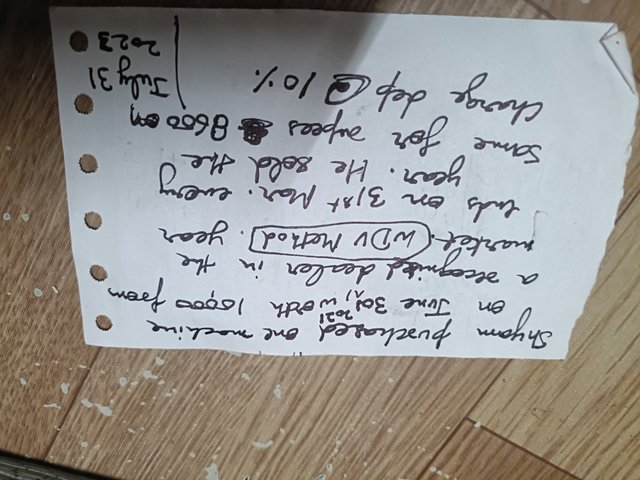 Shyam purchased one machine
on June 30th, 2021 worth 10,000 from
a recognised dealer in the
market. WDV Method. year
ends on 31st Mar. every
year. He sold the
same for rupees 8600 on
Charge dep @ 10%
July 31
2023